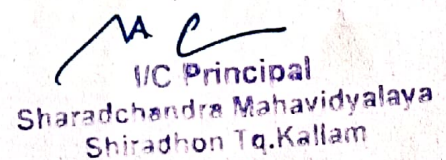 I/C Principal
Sharadchandra Mahavidyalaya
Shiradhon Tq.Kallam